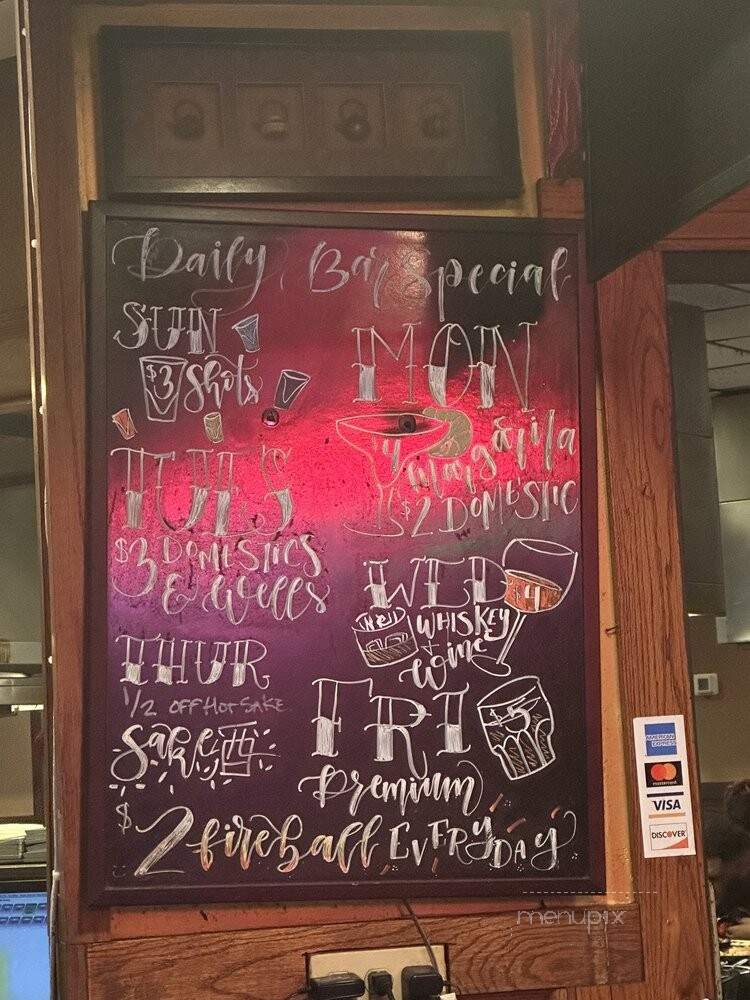 Daily Bar Special
SUN
$3 Shots
MON
$4 margarita
$2 DOMESTIC
TUES
$3 DOMESTICS
& Wells
WED
$4
Well
WHISKEY
+
Wine
THUR
1/2 OFF Hot SAKE
Sake 酒
FRI
$5
Premium
$2 fireball EVERYDAY
AMERICAN EXPRESS
mastercard
VISA
DISCOVER
menupix